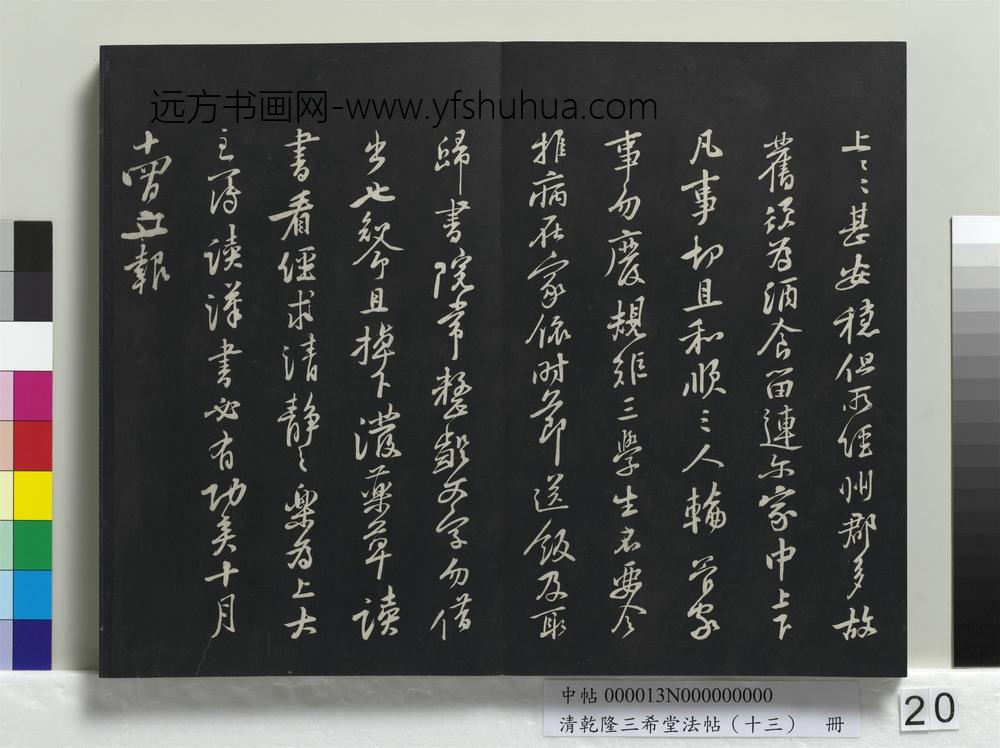 远方书画网-www.yfshuhua.com
上上甚安穩但所經州郡多故
舊須為酒食留連尔家中上下
凡事切且和順三人輪管家
事勿廢規矩三學生不要令
推病在家依時節送飯及取
歸書院常整齪文字勿借
出也知命且掉下潑藥草讀
書看經求清靜之樂為上大
主簿讀漢書必有功矣十月
十四日立報
中帖 000013N000000000
清乾隆三希堂法帖（十三） 冊
20